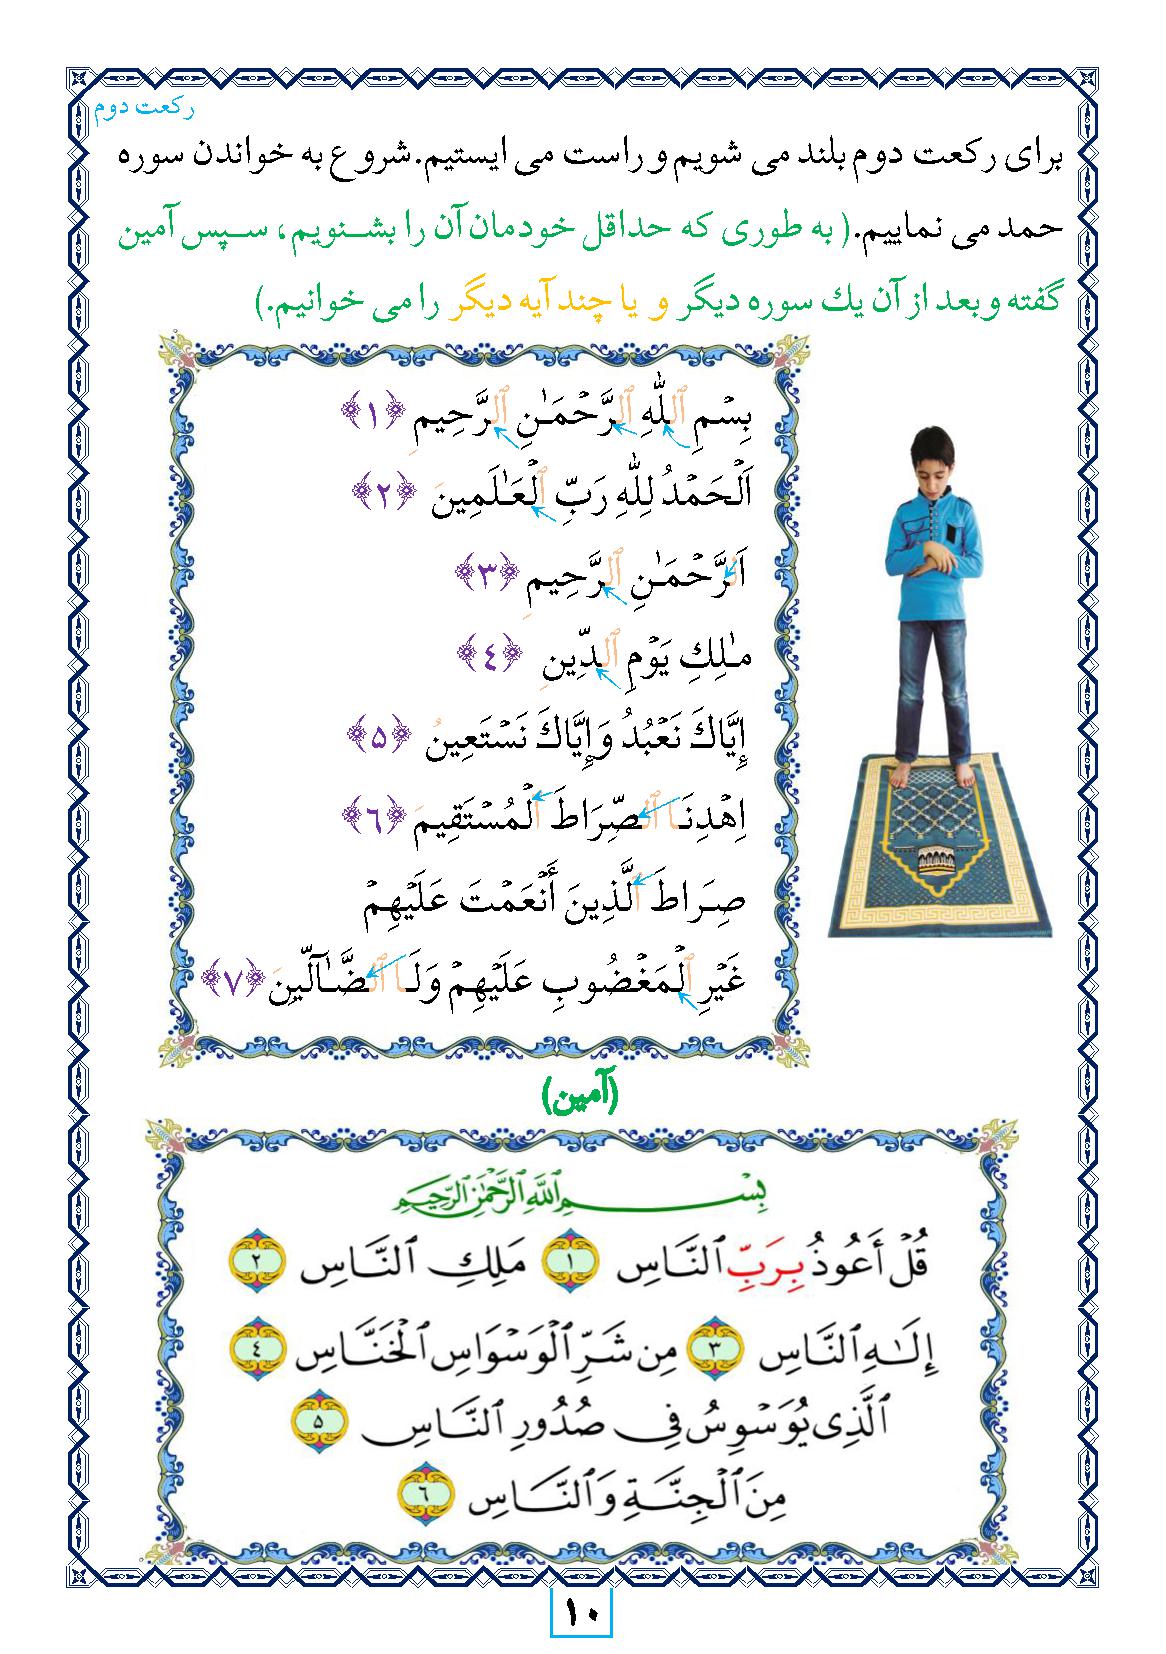 رکعت دوم
برای رکعت دوم بلند می شویم و راست می ایستیم. شروع به خواندن سوره
حمد می نماییم.( به طوری که حداقل خودمان آن را بشنویم، سپس آمین
گفته و بعد از آن یك سوره دیگر و یا چند آیه دیگر را می خوانیم.)
بِسْمِ ٱللّٰهِ ٱلرَّحْمَـٰنِ ٱلرَّحِيمِ ﴿۱﴾
اَلْحَمْدُ لِلّٰهِ رَبِّ ٱلْعَـٰلَمِينَ ﴿۲﴾
اَلرَّحْمَـٰنِ ٱلرَّحِيمِ ﴿۳﴾
مـٰلِكِ يَوْمِ ٱلدِّينِ ﴿٤﴾
إِيَّاكَ نَعْبُدُ وَإِيَّاكَ نَسْتَعِينُ ﴿۵﴾
اِهْدِنَا ٱلصِّرَاطَ ٱلْمُسْتَقِيمَ ﴿٦﴾
صِرَاطَ ٱلَّذِينَ أَنْعَمْتَ عَلَيْهِمْ
غَيْرِ ٱلْمَغْضُوبِ عَلَيْهِمْ وَلَا ٱلضَّآلِّينَ ﴿۷﴾
(آمین)
بِسْمِ ٱللَّهِ ٱلرَّحْمَٰنِ ٱلرَّحِيمِ
قُلْ أَعُوذُ بِرَبِّ ٱلنَّاسِ ۱ مَلِكِ ٱلنَّاسِ ۲
إِلَـٰهِ ٱلنَّاسِ ۳ مِن شَرِّ ٱلْوَسْوَاسِ ٱلْخَنَّاسِ ٤
ٱلَّذِى يُوَسْوِسُ فِى صُدُورِ ٱلنَّاسِ ۵
مِنَ ٱلْجِنَّةِ وَٱلنَّاسِ ٦
۱۰